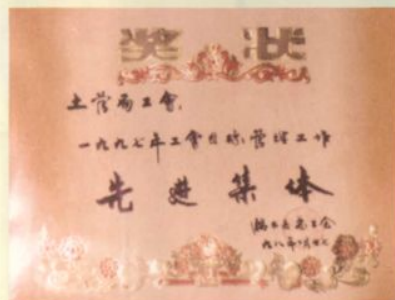 奖状
土管局工會:
一九九七年工會目标管理工作
先進集体
总工会
九八年